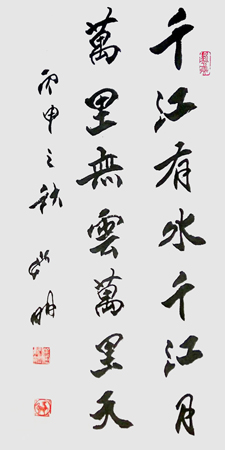 千江有水千江月
萬里無雲萬里天
丙申之秋